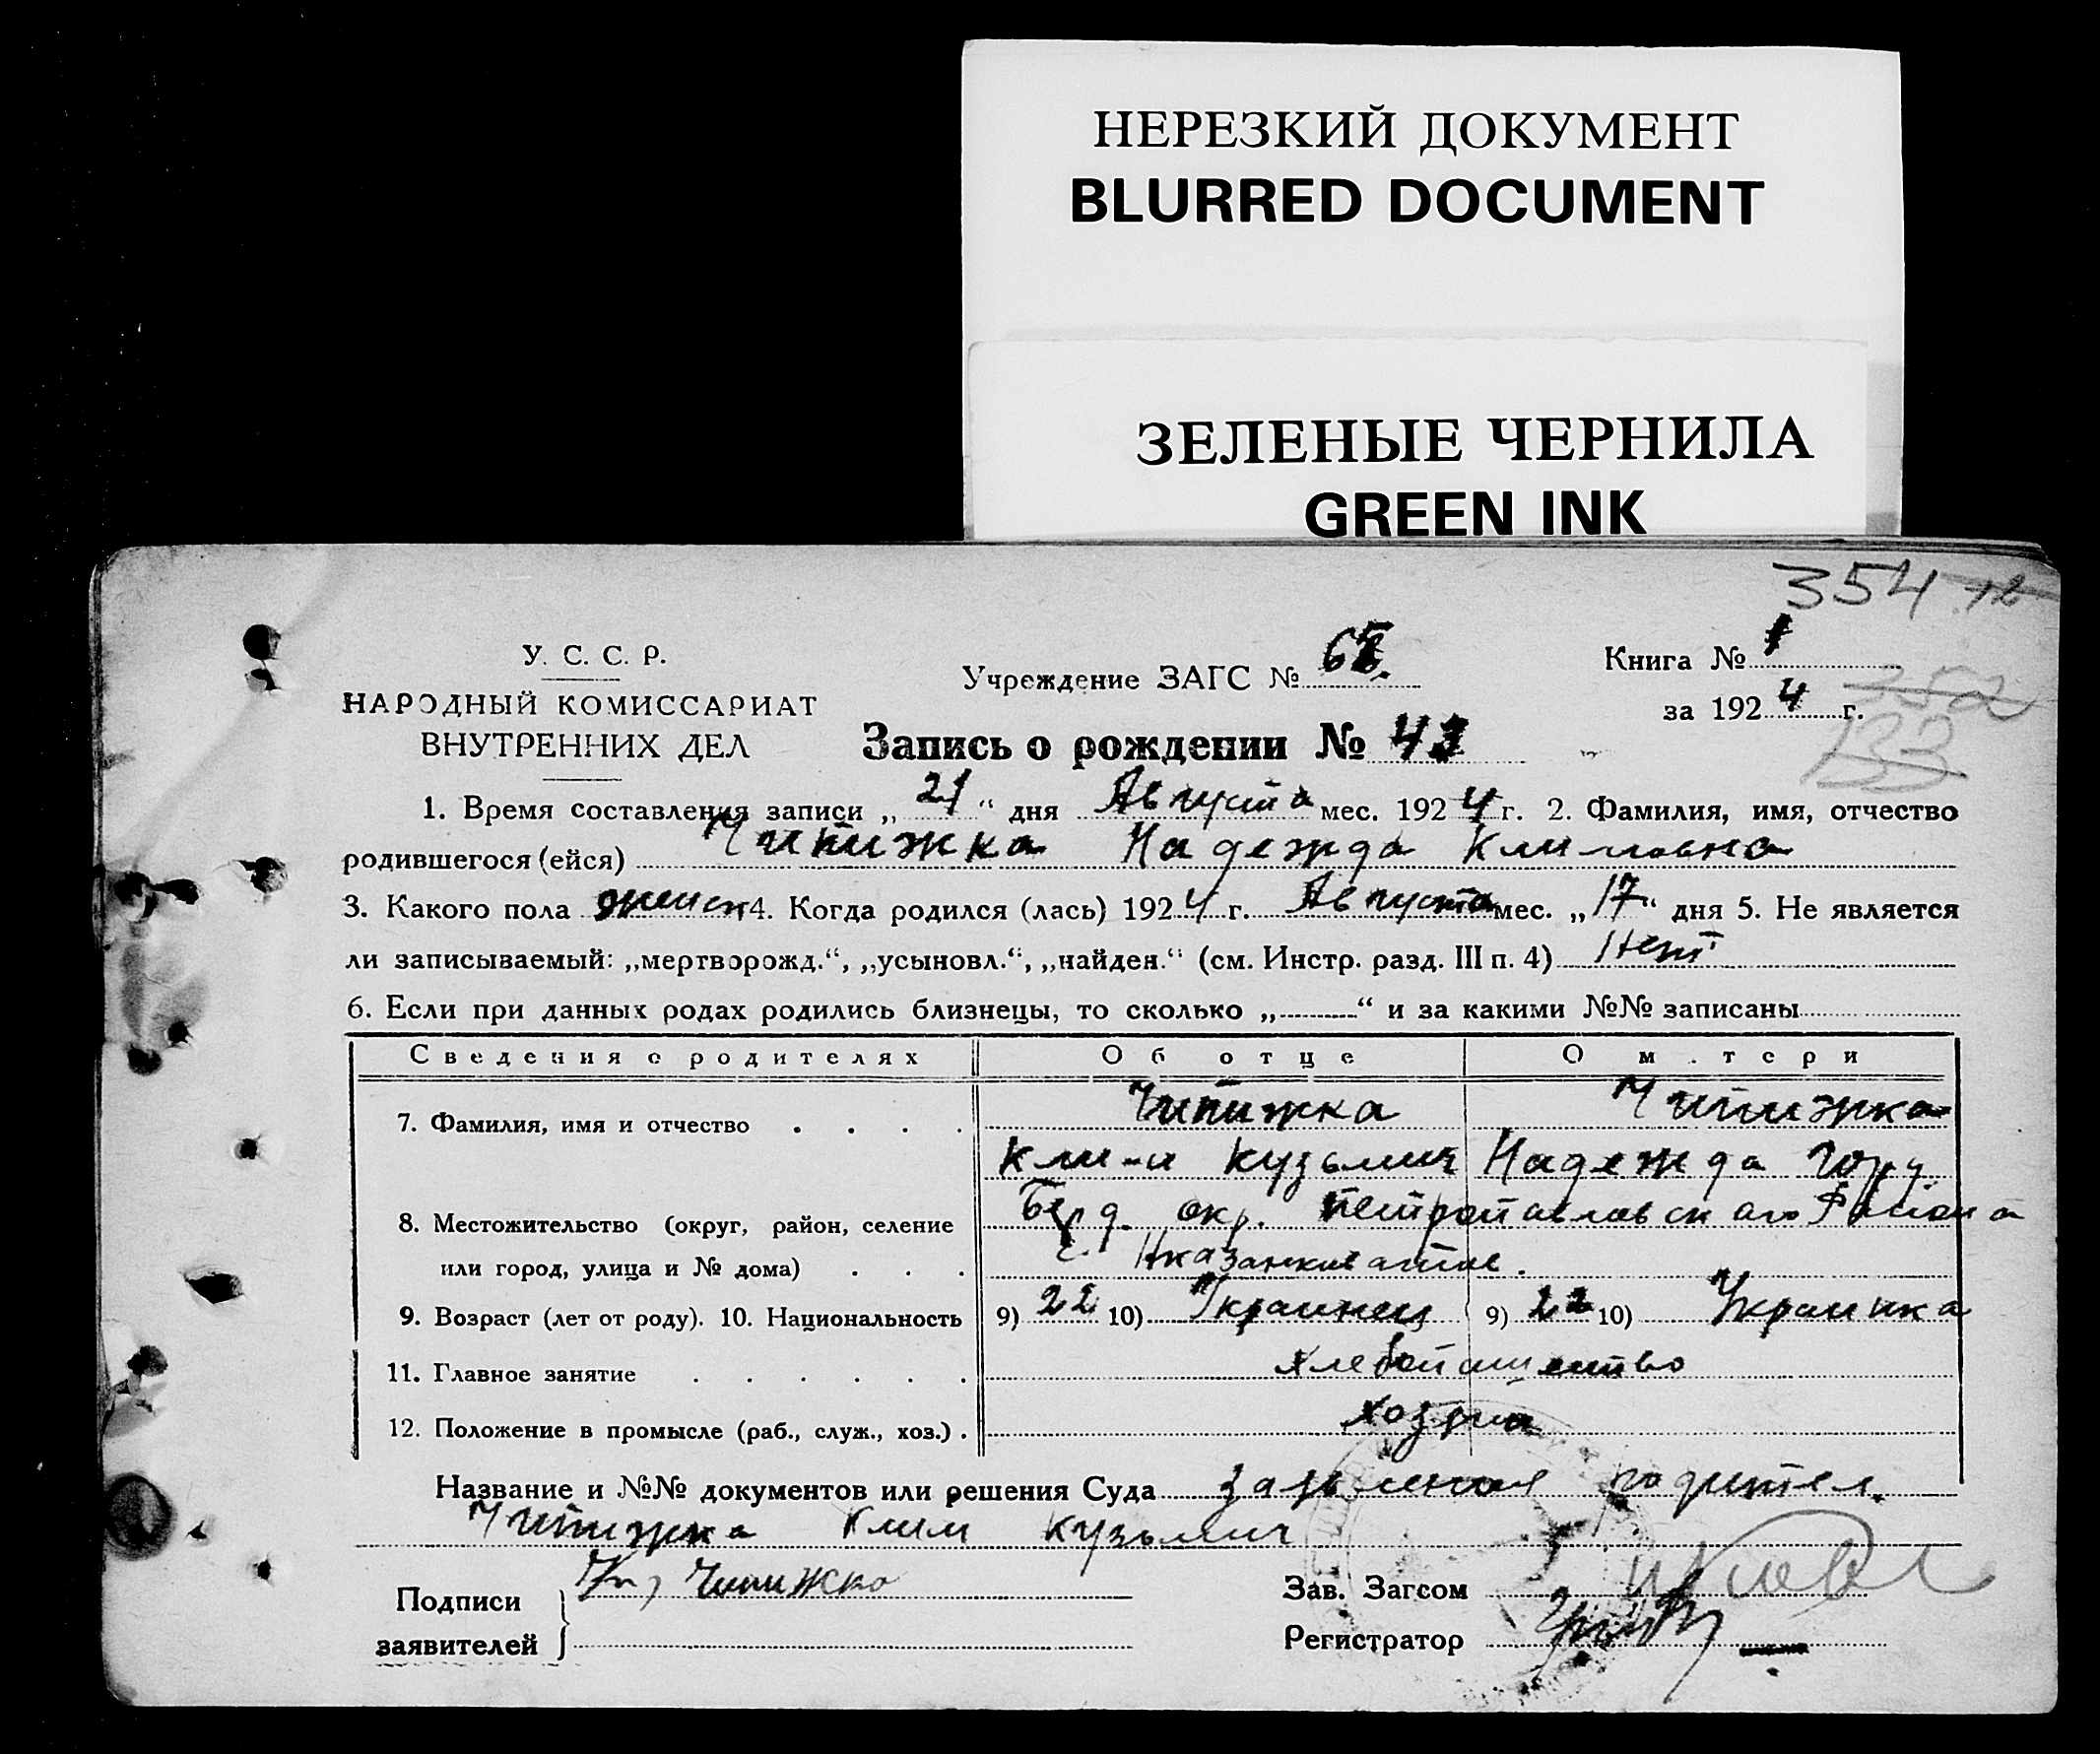 НЕРЕЗКИЙ ДОКУМЕНТ
BLURRED DOCUMENT
ЗЕЛЕНЫЕ ЧЕРНИЛА
GREEN INK
354
У. С. С. Р.
НАРОДНЫЙ КОМИССАРИАТ
ВНУТРЕННИХ ДЕЛ
Учреждение ЗАГС №
Книга № 1
за 1924 г.
352
133
Запись о рождении № 43
1. Время составления записи „21“ дня Августа мес. 1924 г. 2. Фамилия, имя, отчество
родившегося (ейся) Чипижка Надежда Климовна
3. Какого пола женск 4. Когда родился (лась) 1924 г. Августа мес. „17“ дня 5. Не является
ли записываемый: „мертворожд.“, „усыновл.“, „найден.“ (см. Инстр. разд. III п. 4) Нет
6. Если при данных родах родились близнецы, то сколько „ “ и за какими №№ записаны
Сведения о родителях Об отце О матери
7. Фамилия, имя и отчество Чипижка Чипижка
Клим Кузьмич Надежда
8. Местожительство (округ, район, селение Берд. окр. Петропавловского Района
или город, улица и № дома) с.
9. Возраст (лет от роду). 10. Национальность 9) 22 10) Украинец 9) 22 10) Украинка
11. Главное занятие хлебопашество
12. Положение в промысле (раб., служ., хоз.) хозяин
Название и №№ документов или решения Суда заявление родител.
Чипижка Клим Кузьмич
Подписи
заявителей
Чипижко
Зав. Загсом
Регистратор